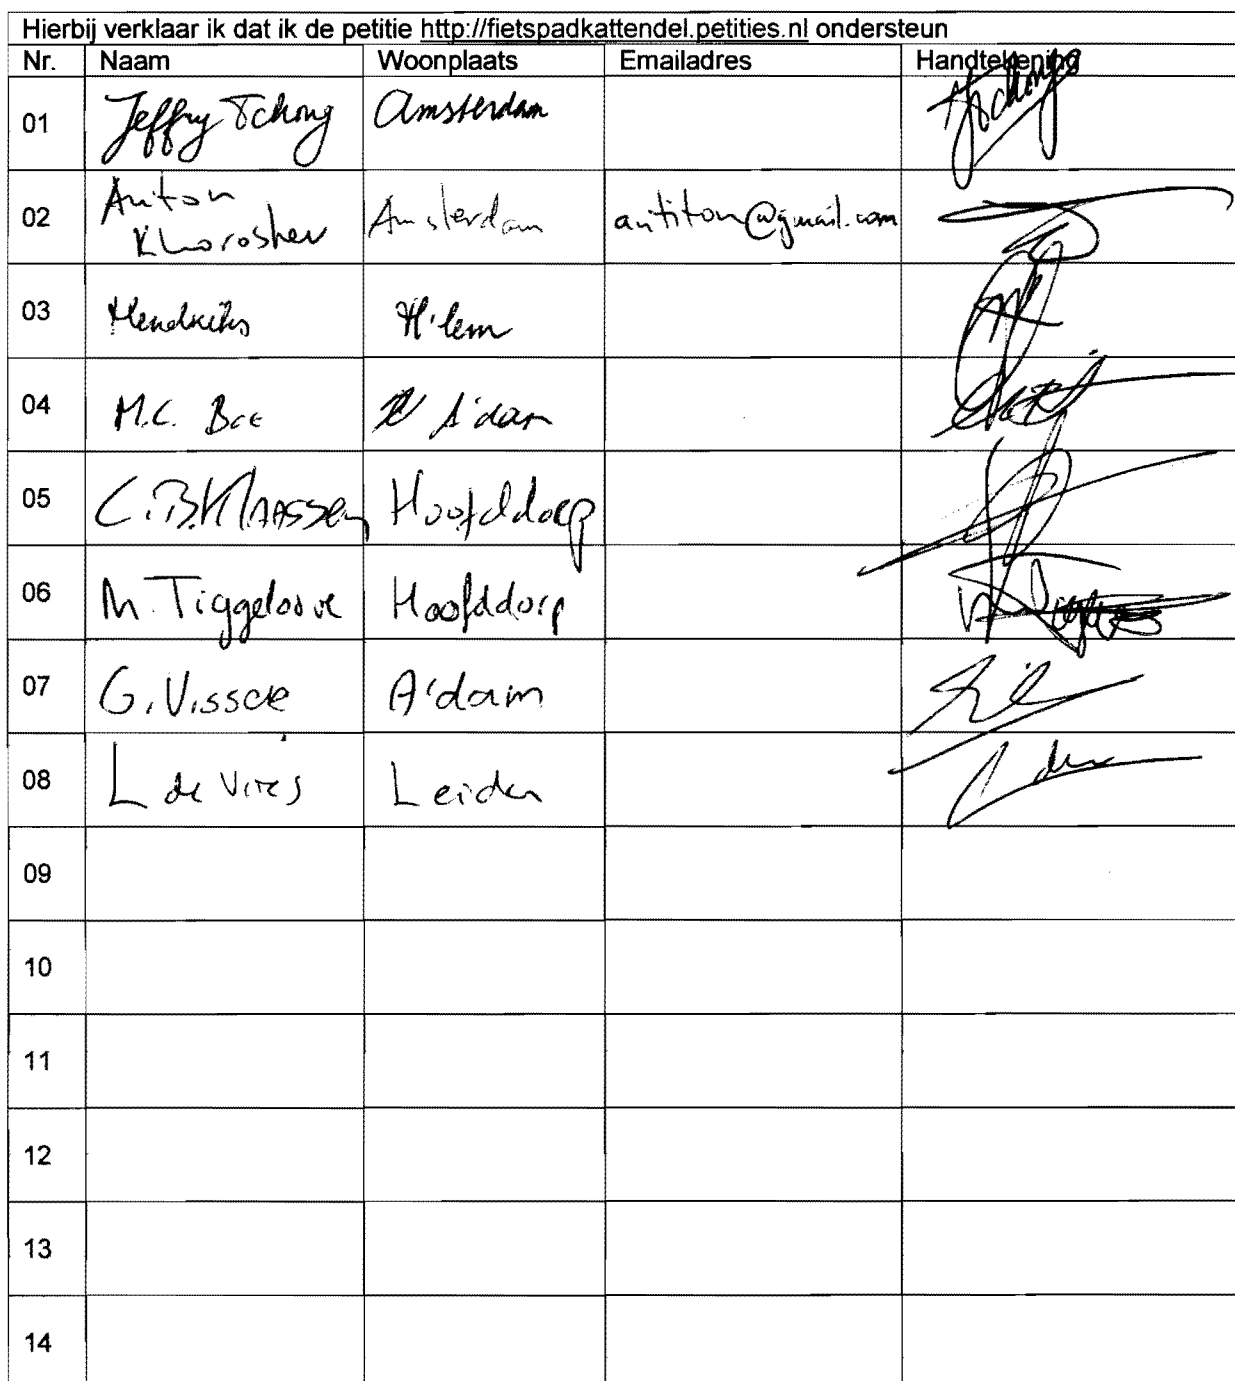 Hierbij verklaar ik dat ik de petitie http://fietspadkattendel.petities.nl ondersteun
Nr. Naam Woonplaats Emailadres Handtekening
01 Jeffry Tchong Amsterdam
02 Anton Khoroshev Amsterdam antiton@gmail.com
03 Hendriks H'lem
04 M.C. Bot A'dam
05 C.B. Klaassen Hoofddorp
06 M. Tiggelove Hoofddorp
07 G. Visscke A'dam
08 L de Vries Leiden
09
10
11
12
13
14